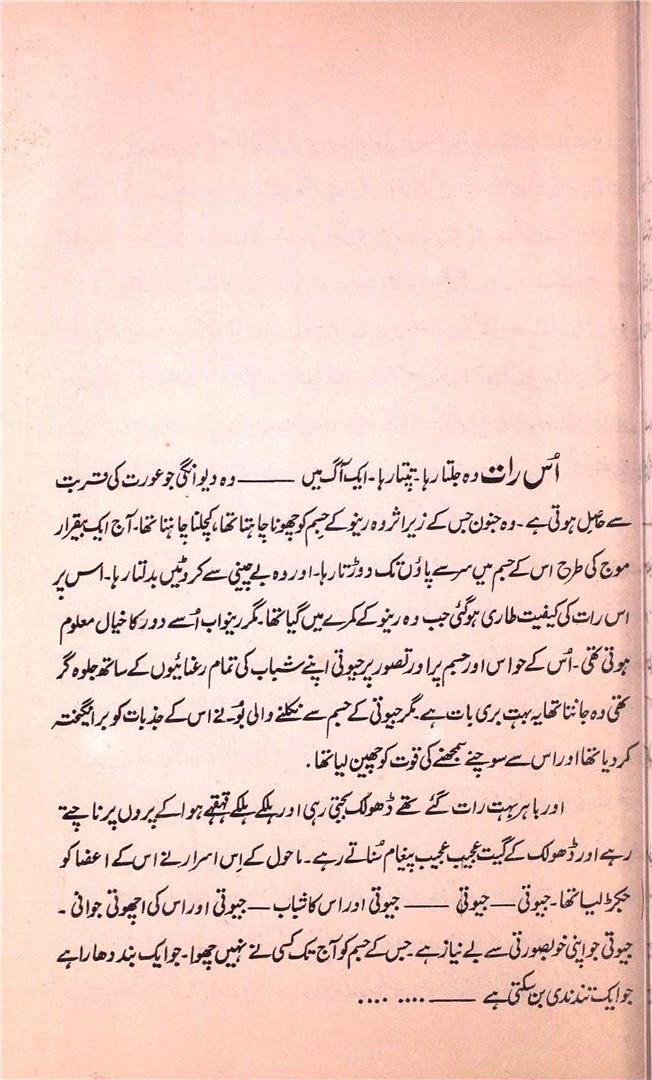 اُس رات وہ جلتا رہا۔ تپتا رہا۔ ایک آگ میں ——— وہ دیوانگی جو عورت کی قربت
سے حاصل ہوتی ہے۔ وہ جنون جس کے زیر اثر وہ رینو کے جسم کو چھونا چاہتا تھا، کچلنا چاہتا تھا۔ آج ایک بیقرار
موج کی طرح اس کے جسم میں سر سے پاؤں تک دوڑتا رہا۔ اور وہ بے چینی سے کروٹیں بدلتا رہا۔ اس پر
اس رات کی کیفیت طاری ہو گئی جب وہ رینو کے کمرے میں گیا تھا۔ مگر رینو اب اُسے دور کا خیال معلوم
ہوتی تھی۔ اُس کے حواس اور جسم پر اور تصور پر جیوتی اپنے شباب کی تمام رعنائیوں کے ساتھ جلوہ گر
تھی وہ جانتا تھا یہ بہت بری بات ہے۔ مگر جیوتی کے جسم سے نکلنے والی بُو نے اس کے جذبات کو برانگیختہ
کر دیا تھا اور اس سے سوچنے سمجھنے کی قوت کو چھین لیا تھا۔
اور باہر بہت رات گئے تھے ڈھولک بجتی رہی اور ہلکے ہلکے قہقہے ہوا کے پروں پر ناچتے
رہے اور ڈھولک کے گیت عجیب عجیب پیغام سُناتے رہے۔ ماحول کے اِس اسرار نے اس کے اعضا کو
جکڑ لیا تھا۔ جیوتی — جیوتی ——— جیوتی اور اس کا شباب — جیوتی اور اس کی اچھوتی جوانی۔
جیوتی جو اپنی خوبصورتی سے بے نیاز ہے۔ جس کے جسم کو آج تک کسی نے نہیں چھوا۔ جو ایک بند دھارا ہے
جو ایک تند ندی بن سکتی ہے ——— .... ....